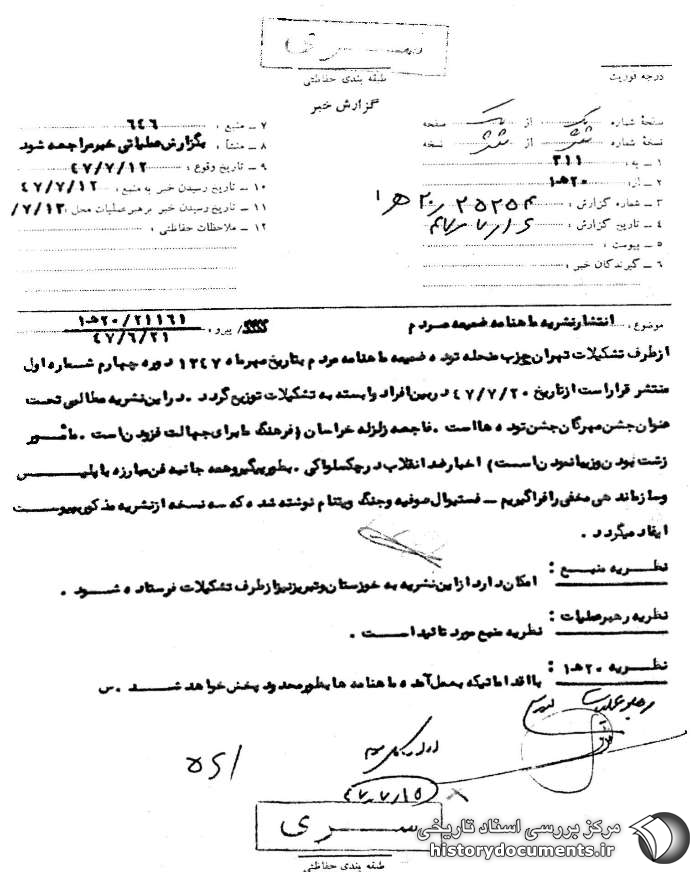 سری
طبقه بندی حفاظتی
درجه فوریت
گزارش خبر
صفحهٔ شماره یک از یک صفحه
نسخهٔ شماره از نسخه
۱ ـ به : ۳۱۱
۲ ـ از : ۲۰هـ۱
۳ ـ شماره گزارش : ۲۵۲۵۴ / ۲۰هـ۱
۴ ـ تاریخ گزارش :
۵ ـ پیوست :
۶ ـ گیرندگان خبر :
۷ ـ منبع : ۶۴۶
۸ ـ منشأ : بگزارش عملیاتی خبر مراجعه شود
۹ ـ تاریخ وقوع : ۴۷/۷/۱۲
۱۰ ـ تاریخ رسیدن خبر به منبع : ۴۷/۷/۱۲
۱۱ ـ تاریخ رسیدن خبر برهبر عملیات محل : /۷/۱۳
۱۲ ـ ملاحظات حفاظتی :
موضوع : انتشار نشریه ماهنامه ضمیمه مردم / پیرو : ۲۰/۲۱۱۶۱هـ۱
۴۷/۶/۲۱
از طرف تشکیلات تهران حزب منحله توده ضمیمه ماهنامه مردم بتاریخ مهرماه ۱۳۴۷ دوره چهارم شماره اول
منتشر قرار است از تاریخ ۴۷/۷/۲۰ در بین افراد وابسته به تشکیلات توزیع گردد . در این نشریه مطالبی تحت
عنوان جشن مهرگان جشن توده ها است . فاجعه زلزله خراسان (فرهنگ ما برای جهالت فزودن است . مأمور
زشت بودن و زیبا نمودن است) اخبار ضد انقلاب در چکسلواکی . بطور پیگیر و همه جانبه فن مبارزه با پلیس
و سازماندهی مخفی را فراگیریم ـ فستیوال صوفیه و جنگ ویتنام نوشته شده که سه نسخه از نشریه مذکور بپیوست
ایفاد میگردد .
نظریه منبع : امکان دارد از این نشریه به خوزستان و تبریز نیز از طرف تشکیلات فرستاده شود .
نظریه رهبر عملیات : نظریه منبع مورد تائید است .
نظریه ۲۰هـ۱ : با اقداماتیکه بعمل آمده ماهنامه ها بطور محدود پخش خواهد شد . س
رهبر عملیات
۴۷/۷/۱۵
سری
طبقه بندی حفاظتی
مرکز بررسی اسناد تاریخی
historydocuments.ir